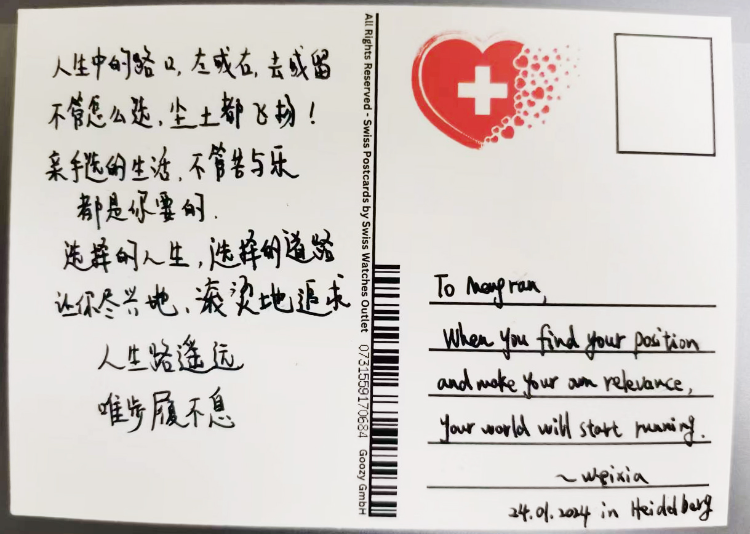 人生中的路口,左或右,去或留
不管怎么选,尘土都飞扬!
亲手选的生活,不管苦与乐
都是你要的.
选择的人生,选择的道路
让你尽兴地、滚烫地追求
人生路遥远
唯步履不息
All Rights Reserved - Swiss Postcards by Swiss Watches Outlet 0731559170684 Goozy GmbH
To Mengran,
When you find your position
and make your own relevance,
your world will start running.
~Weixia
24.01.2024 in Heidelberg